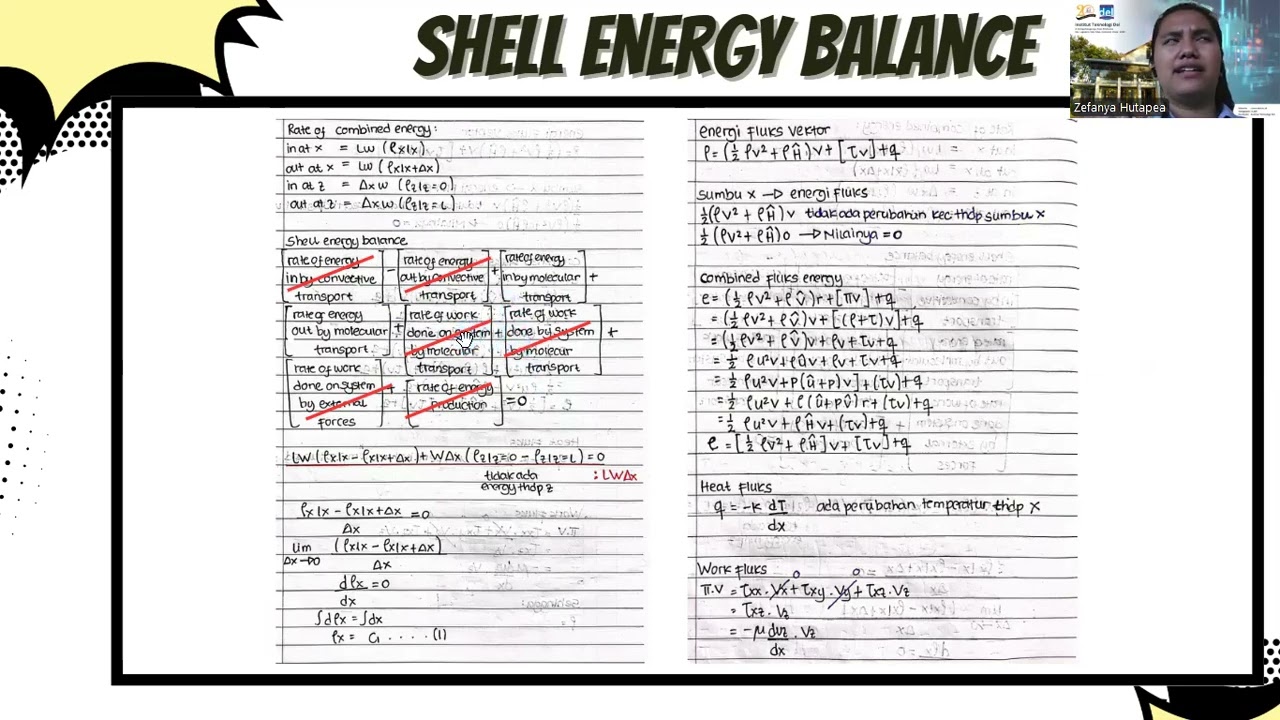 SHELL ENERGY BALANCE
del
Institut Teknologi Del
Zefanya Hutapea
Rate of combined energy:
in at x = LW (ex|x)
out at x = LW (ex|x+Δx)
in at z = Δx W (ez|z=0)
out at z = Δx W (ez|z=L)
Shell energy balance
[rate of energy in by convective transport] - [rate of energy out by convective transport] + [rate of energy in by molecular transport] +
[rate of energy out by molecular transport] + [rate of work done on system by molecular transport] + [rate of work done by system by molecur transport] +
[rate of work done on system by external forces] + [rate of energy production] = 0
LW (ex|x - ex|x+Δx) + WΔx (ez|z=0 - ez|z=L) = 0
tidak ada energy thdp z
: LWΔx
ex|x - ex|x+Δx = 0
Δx
lim (ex|x - ex|x+Δx)
Δx→0 Δx
dex = 0
dx
∫dex = ∫dx
ex = C₁ . . . . (1)
energi fluks vektor
e = (½ ρv² + ρĤ)v + [τv] + q
sumbu x → energi fluks
½(ρv² + ρĤ)v tidak ada perubahan kec thdp sumbu x
½(ρv² + ρĤ)0 → Nilainya = 0
Combined fluks energy
e = (½ ρv² + ρV̂)v + [πv] + q
= (½ ρv² + ρV̂)v + [(ρ+τ)v] + q
= (½ ρv² + ρV̂)v + ρv + τv + q
= ½ ρu²v + ρûv + ρv + τv + q
= ½ ρu²v + ρ(û+ρ)v] + (τv) + q
= ½ ρu²v + ρ(û+ρv̂)v + (τv) + q
= ½ ρu²v + ρĤv + (τv) + q
e = [½ ρv² + ρĤ]v + [τv] + q
Heat fluks
q = -k dT ada perubahan temperatur thdp x
dx
Work fluks
π.v = τxx . vx + τxy . vy + τxz . vz
= τxz . vz
= -μ dvz . vz
dx